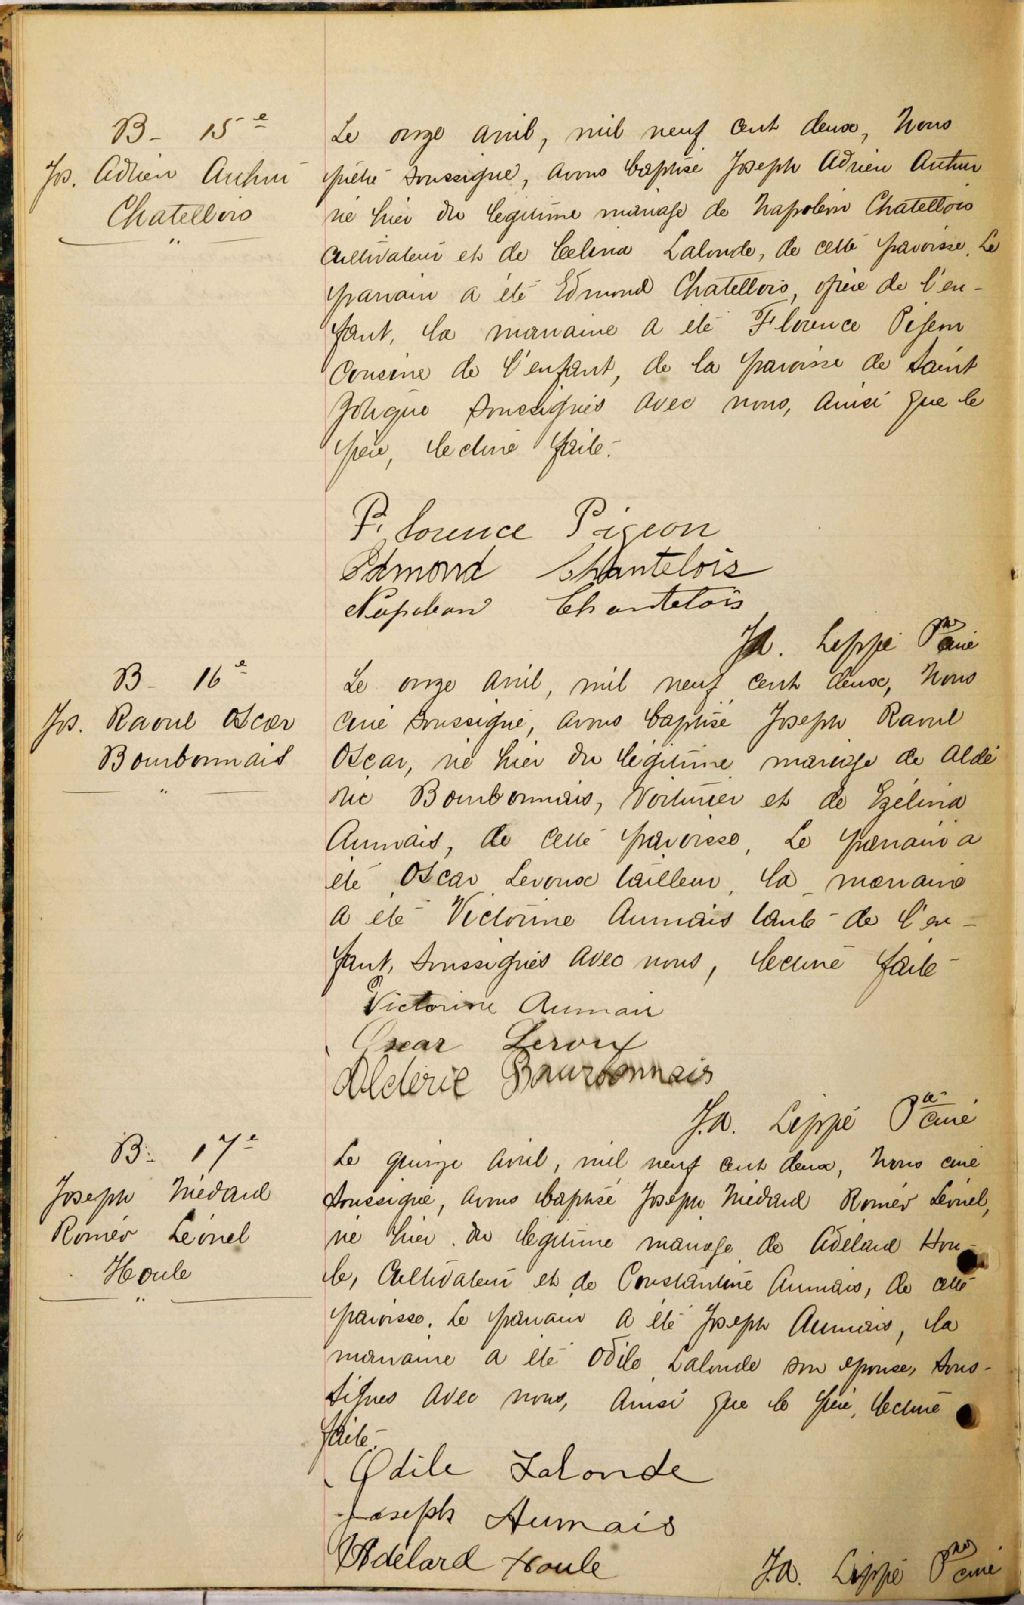 B - 15e
Jos. Adrien Arthur
Chatellois
"
Le onze avril, mil neuf cent deux, Nous
prêtre soussigné, avons baptisé Joseph Adrien Arthur
né hier du légitime mariage de Napoléon Chatellois
cultivateur et de Celina Lalonde, de cette paroisse. Le
parrain a été Edmond Chatellois, frère de l'en-
fant, la marraine a été Florence Pigeon
cousine de l'enfant, de la paroisse de Saint
soussignés avec nous, ainsi que le
père, lecture faite.
Florence Pigeon
Edmond Chantelois
Napoleon Chantelois
J.A. Lippé Ptre curé
B - 16e
Jos. Raoul Oscar
Bourbonnais
"
Le onze avril, mil neuf cent deux, Nous
curé soussigné, avons baptisé Joseph Raoul
Oscar, né hier du légitime mariage de Aldé
ric Bourbonnais, voiturier et de Ezélina
Aumais, de cette paroisse. Le parrain a
été Oscar Leroux tailleur, la marraine
a été Victorine Aumais tante de l'en-
fant, soussignés avec nous, lecture faite
Victorine Aumais
Oscar Leroux
Alderic Bourbonnais
J.A. Lippé Ptre curé
B - 17e
Joseph Médard
Roméo Léonel
Houle
"
Le quinze avril, mil neuf cent deux, Nous curé
soussigné, avons baptisé Joseph Médard Roméo Léonel,
né hier du légitime mariage de Adélard Hou-
le, cultivateur et de Constantine Aumais, de cette
paroisse. Le parrain a été Joseph Aumais, la
marraine a été Odile Lalonde son épouse, sous-
signés avec nous, ainsi que le père, lecture
faite.
Odile Lalonde
Joseph Aumais
Adélard Houle
J.A. Lippé Ptre curé